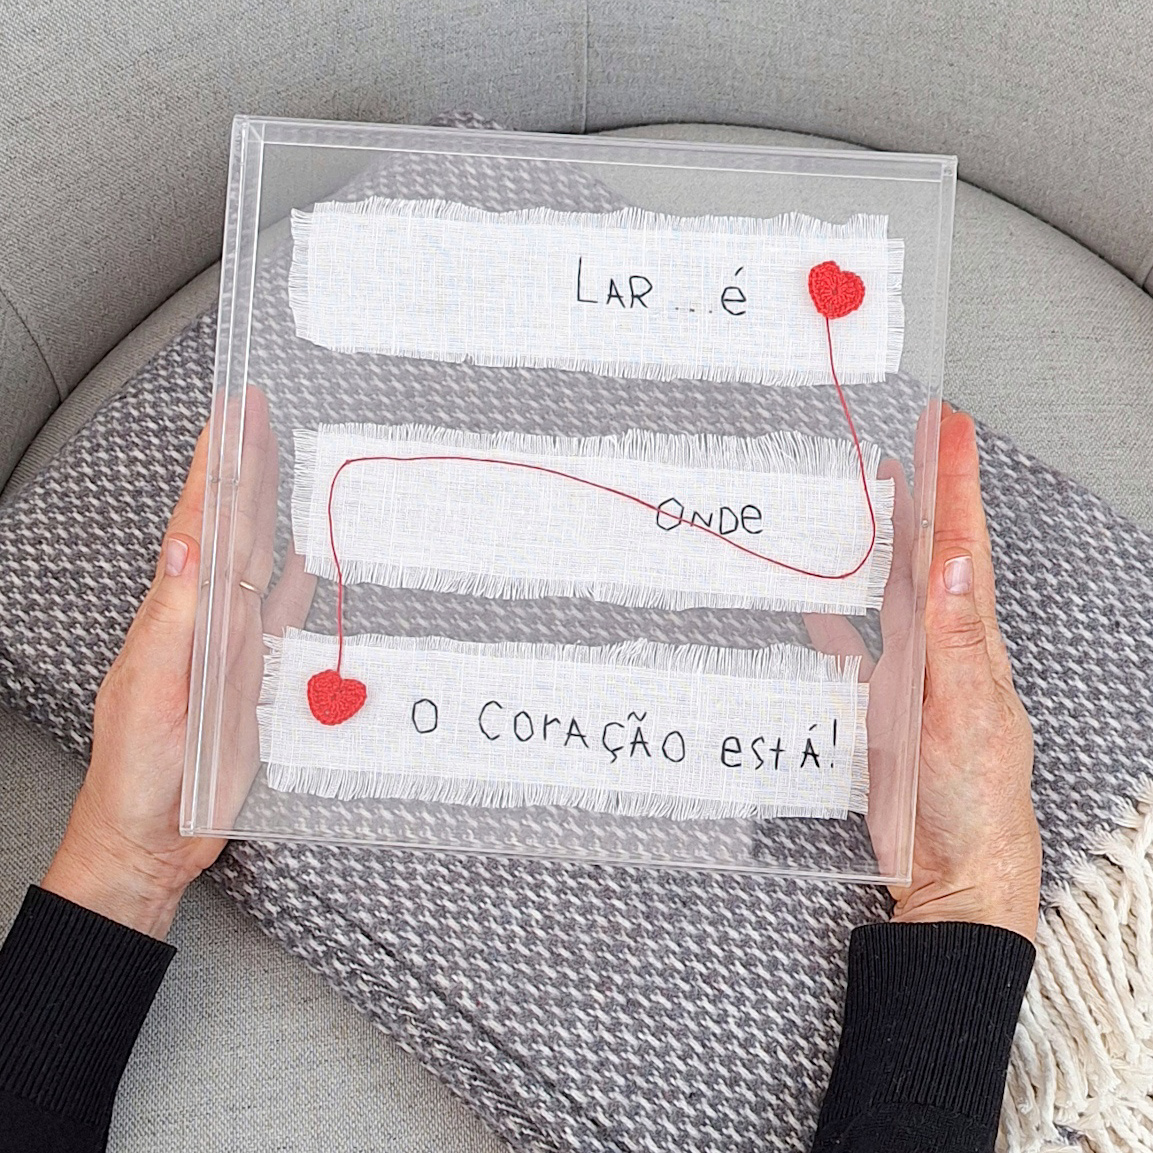 LAR ... é
ONDe
o CorAÇÃO estÁ!